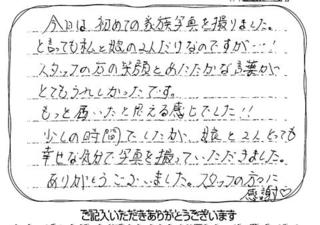 今日は初めての家族写真を撮りました。
と言っても私と娘の2人だりなのですが…!
スタッフの方の笑顔とあたたかな言葉が
とてもうれしかったです。
もっと居いたと思える感じでした!!
少しの時間でしたが、娘と2人とっても
幸せな気分で写真を撮っていただきました。
ありがとうございました。スタッフの方々に
感謝♡
ご記入いただきありがとうございます